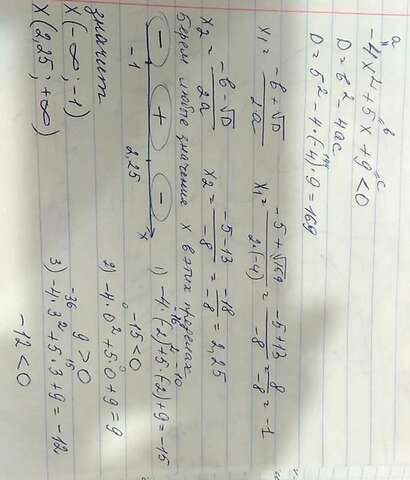 a b c
-4x² + 5x + 9 < 0
D = b² - 4ac
D = 5² - 4·(-4)·9 = 169
x₁ = (-b + √D)/2a x₁ = (-5 + √169)/(2·(-4)) = (-5 + 13)/-8 = 8/-8 = -1
x₂ = (-b - √D)/2a x₂ = (-5 - 13)/-8 = -18/-8 = 2,25
Берем любые значения x в этих пределах
- + -
-1 2,25 x
1) -4·(-2)² + 5·(-2) + 9 = -15
-16 -10
-15 < 0
2) -4·0² + 5·0 + 9 = 9
0 0
9 > 0
3) -4·3² + 5·3 + 9 = -12
-36 15
-12 < 0
значит
X (-∞; -1)
X (2,25; +∞)